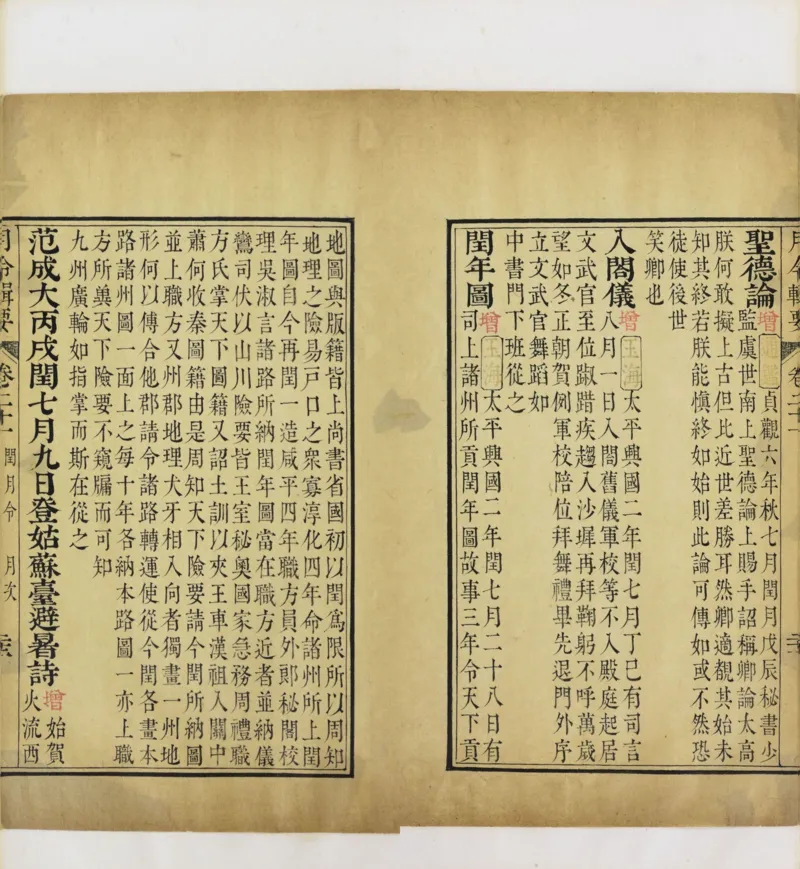 月令輯要 卷二十一
聖德論 增 貞觀六年秋七月閏月戊辰秘書少
監虞世南上聖德論上賜手詔稱卿論太高
朕何敢擬上古但比近世差勝耳然卿適覩其始未
知其終若朕能慎終如始則此論可傳如或不然恐
徒使後世
笑卿也
入閣儀 增 玉海 太平興國二年閏七月丁巳有司言
八月一日入閤舊儀軍校等不入殿庭起居
文武官至位踧踖疾趨入沙墀再拜鞠躬不呼萬歲
望如冬正朝賀例軍校陪位拜舞禮畢先退門外序
立文武官舞蹈如
中書門下班從之
閏年圖 增 玉海 太平興國二年閏七月二十八日有
司上諸州所貢閏年圖故事三年令天下貢
地圖與版籍皆上尚書省國初以閏爲限所以周知
地理之險易戸口之衆寡淳化四年命諸州所上閏
年圖自今再閏一造咸平四年職方員外郎秘閣校
理吳淑言諸路所納閏年圖當在職方近者並納儀
鸞司伏以山川險要皆王室秘奧國家急務周禮職
方氏掌天下圖籍又詔土訓以夾王車漢祖入關中
蕭何收秦圖籍由是周知天下險要請令閏所納圖
並上職方又州郡地理犬牙相入向者獨畫一州地
形何以傳合他郡請令諸路轉運使從今閏各畫本
路諸州圖一面上之每十年各納本路圖一亦上職
方所兾天下險要不窺牖而可知
九州廣輪如指掌而斯在從之
范成大丙戌閏七月九日登姑蘇臺避暑詩 增 始賀
火流西
月令輯要 卷二十一 閏月令 月次 二六